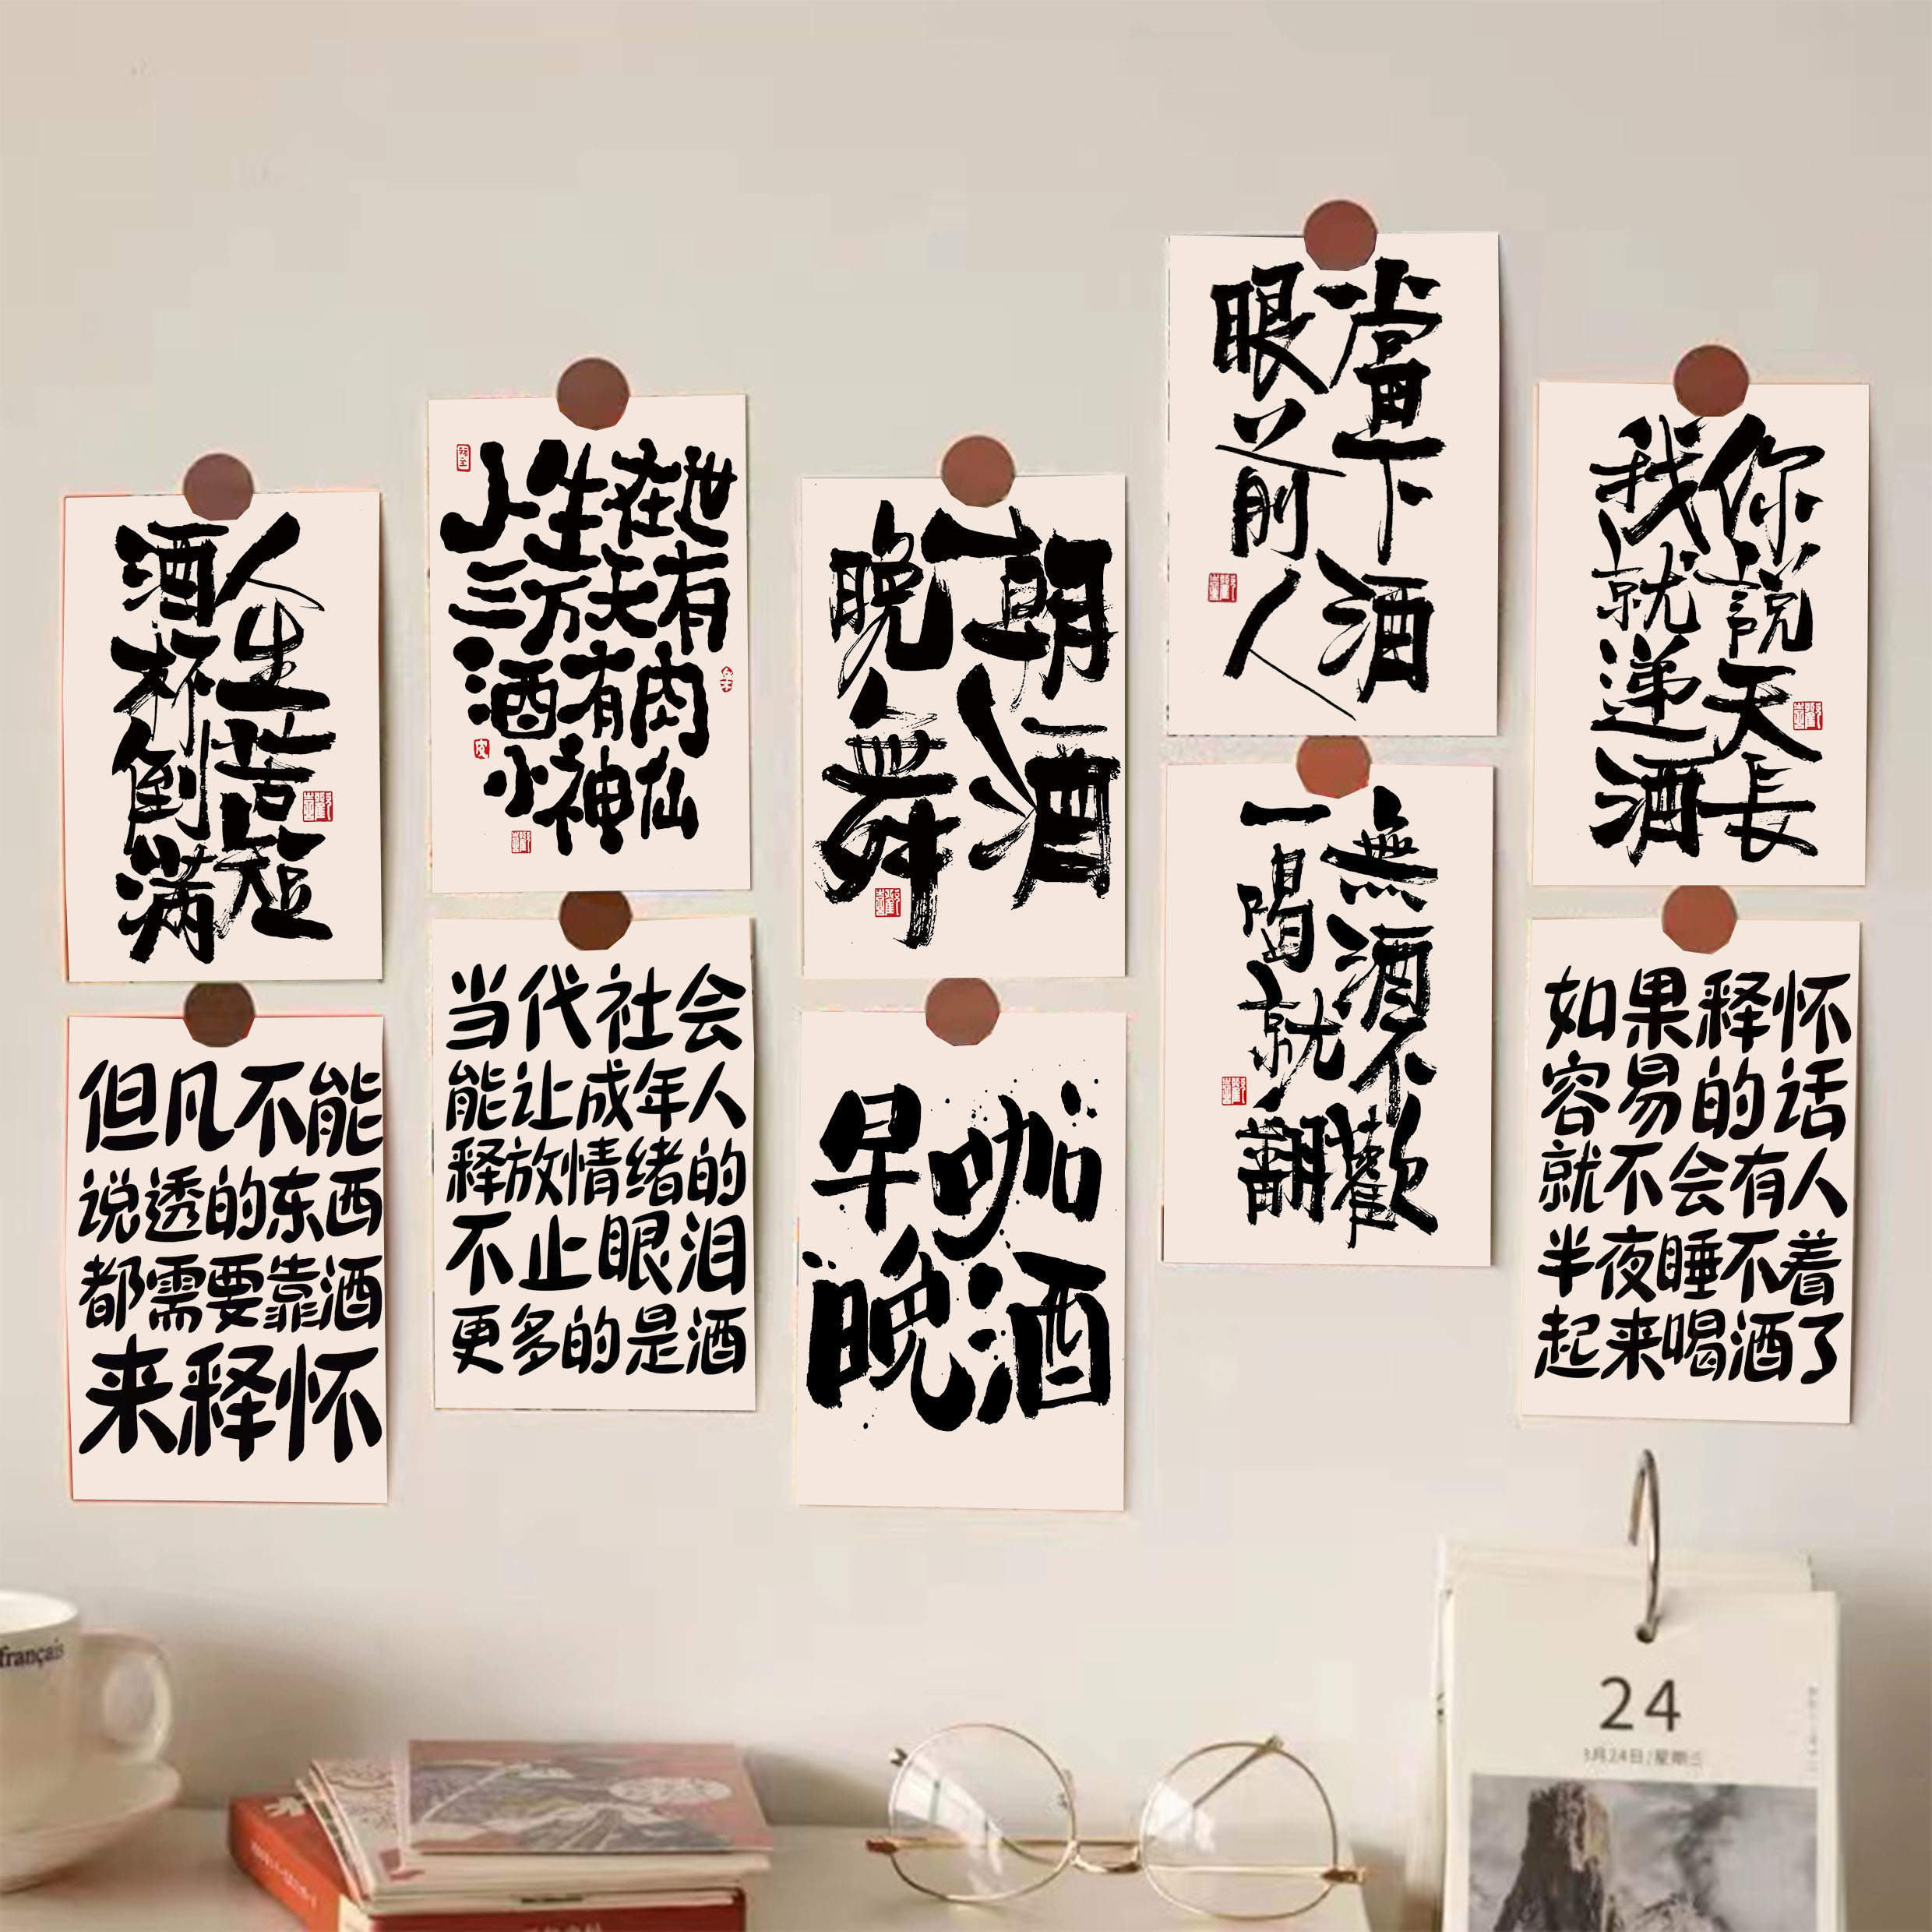 人生苦短
酒杯倒满
人生在世
三万天有
酒有肉
小神仙
一朝一酒
一晚一舞
當下酒
眼前人
你說天長
我就遞酒
但凡不能
说透的东西
都需要靠酒
来释怀
当代社会
能让成年人
释放情绪的
不止眼泪
更多的是酒
早咖
晚酒
無酒不歡
一喝就翻
如果释怀
容易的话
就不会有人
半夜睡不着
起来喝酒了
français
24
3月24日/星期三